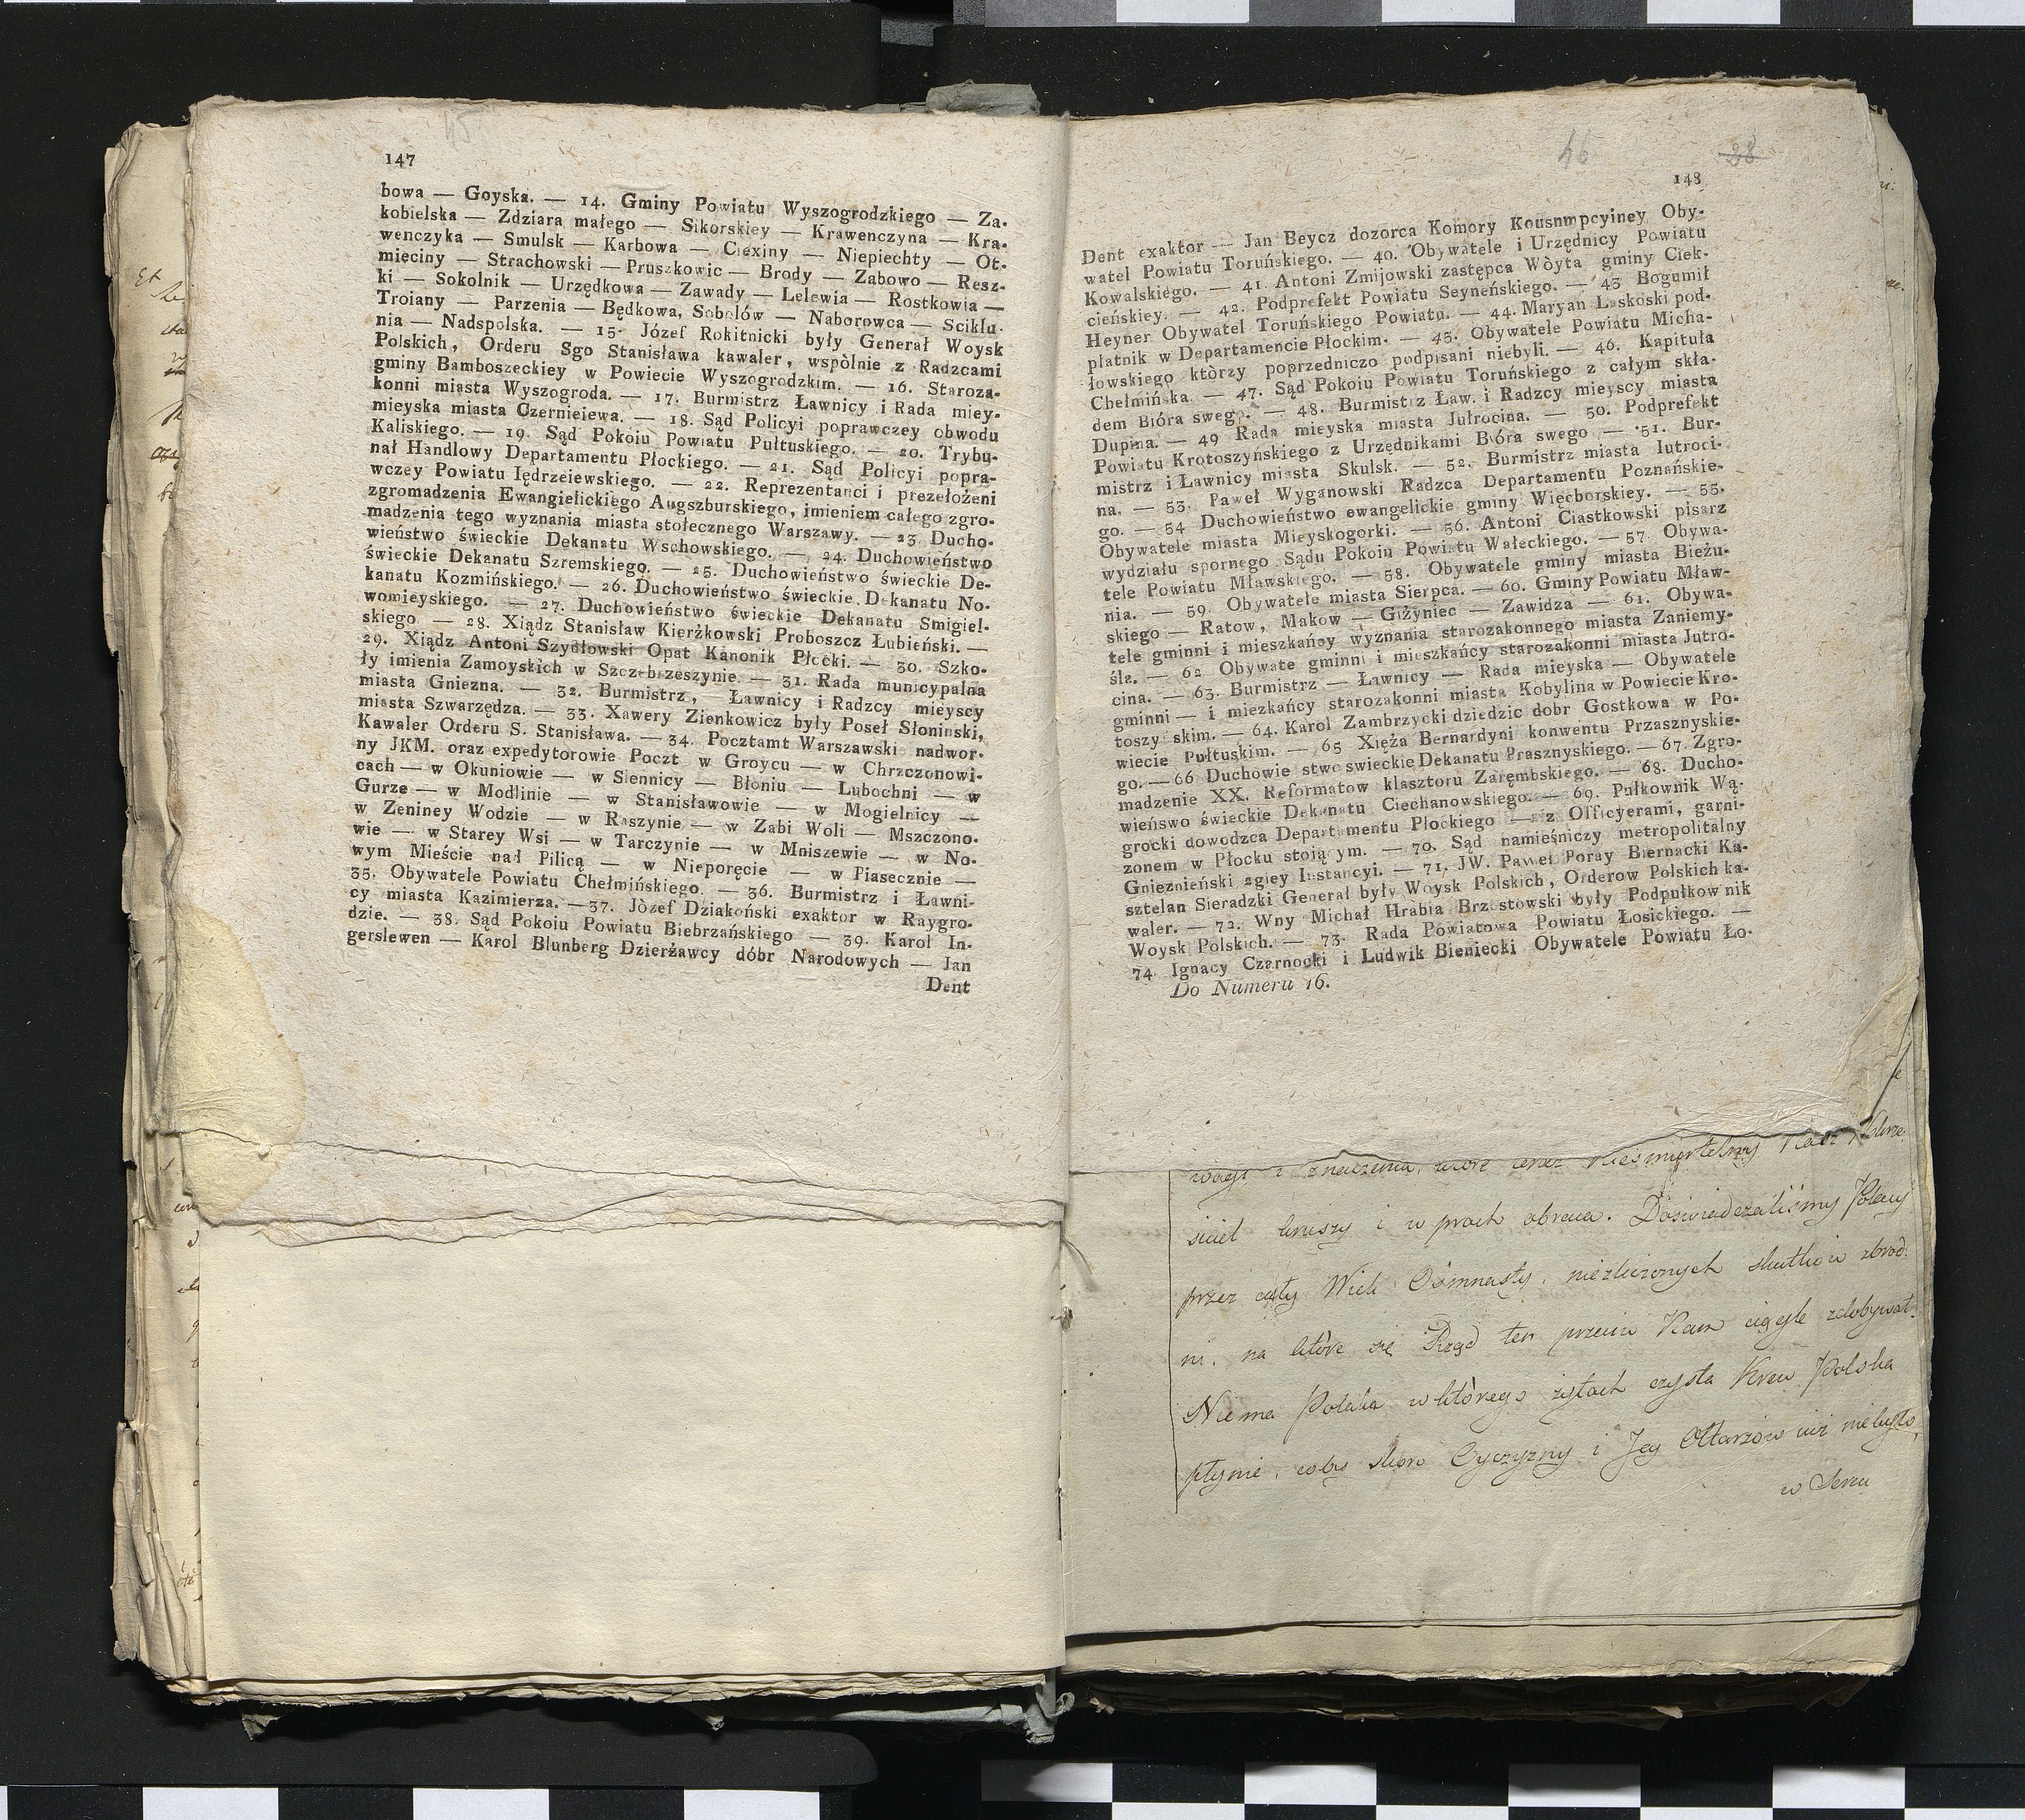 45
147
bowa — Goyska. — 14. Gminy Powiatu Wyszogrodzkiego — Za-
kobielska — Zdziara małego — Sikorskiey — Krawenczyna — Kra-
wenczyka — Smulsk — Karbowa — Ciexiny — Niepiechty — Ot-
mięciny — Strachowski — Pruszkowic — Brody — Zabowo — Resz-
ki — Sokolnik — Urzędkowa — Zawady — Lelewia — Rostkowia —
Troiany — Parzenia — Będkowa, Sobolów — Naborowca — Sciklu-
nia — Nadspolska. — 15. Józef Rokitnicki były Generał Woysk
Polskich, Orderu Sgo Stanisława kawaler, wspòlnie z Radzcami
gminy Bamboszeckiey w Powiecie Wyszogrodzkim. — 16. Staroza-
konni miasta Wyszogroda. — 17. Burmistrz Ławnicy i Rada miey-
mieyska miasta Czernieiewa. — 18. Sąd Policyi poprawczey obwodu
Kaliskiego. — 19. Sąd Pokoiu Powiatu Pułtuskiego. — 20. Trybu-
nał Handlowy Departamentu Płockiego. — 21. Sąd Policyi popra-
wczey Powiatu Iędrzeiewskiego. — 22. Reprezentanci i przełożeni
zgromadzenia Ewangielickiego Augszburskiego, imieniem całego zgro-
madzenia tego wyznania miasta stołecznego Warszawy. — 23. Ducho-
wieństwo świeckie Dekanatu Wschowskiego. — 24. Duchowieństwo
świeckie Dekanatu Szremskiego. — 25. Duchowieństwo świeckie De-
kanatu Kozmińskiego. — 26. Duchowieństwo świeckie Dekanatu No-
womieyskiego. — 27. Duchowieństwo świeckie Dekanatu Smigiel-
skiego — 28. Xiądz Stanisław Kierżkowski Proboszcz Łubieński. —
29. Xiądz Antoni Szydłowski Opat Kanonik Płocki. — 30. Szko-
ły imienia Zamoyskich w Szczebrzeszynie. — 31. Rada municypalna
miasta Gniezna. — 32. Burmistrz, — Ławnicy i Radzcy mieyscy
miasta Szwarzędza. — 33. Xawery Zienkowicz były Poseł Słonimski,
Kawaler Orderu S. Stanisława. — 34. Pocztamt Warszawski nadwor-
ny JKM. oraz expedytorowie Poczt w Groycu — w Chrzczonowi-
cach — w Okuniowie — w Siennicy — Błoniu — Lubochni — w
Gurze — w Modlinie — w Stanisławowie — w Mogielnicy —
w Zeniney Wodzie — w Raszynie — w Zabi Woli — Mszczono-
wie — w Starey Wsi — w Tarczynie — w Mniszewie — w No-
wym Mieście nad Pilicą — w Nieporęcie — w Piasecznie —
35. Obywatele Powiatu Chełmińskiego. — 36. Burmistrz i Ławni-
cy miasta Kazimierza. — 37. Jòzef Dziakoński exaktor w Raygro-
dzie. — 38. Sąd Pokoiu Powiatu Biebrzańskiego — 39. Karol In-
gerslewen — Karol Blunberg Dzierżawcy dóbr Narodowych — Jan
Dent
46 28
148
Dent exaktor — Jan Beycz dozorca Komory Kousnmpcyiney Oby-
watel Powiatu Toruńskiego. — 40. Obywatele i Urzędnicy Powiatu
Kowalskiego. — 41 Antoni Zmijowski zastępca Wòyta gminy Ciek-
cieńskiey. — 42. Podprefekt Powiatu Seyneńskiego. — 43 Bogumił
Heyner Obywatel Toruńskiego Powiatu. — 44. Maryan Laskoski pod-
płatnik w Departamencie Płockim. — 45. Obywatele Powiatu Micha-
łowskiego ktòrzy poprzedniczo podpisani niebyli. — 46. Kapituła
Chełmińska — 47. Sąd Pokoiu Powiatu Toruńskiego z całym skła-
dem Bióra swego. — 48. Burmistrz Ław. i Radzcy mieyscy miasta
Dupina. — 49 Rada mieyska miasta Jutrocina. — 50. Podprefekt
Powiatu Krotoszyńskiego z Urzędnikami Bióra swego — 51. Bur-
mistrz i Ławnicy miasta Skulsk. — 52. Burmistrz miasta Iutroci-
na. — 53. Paweł Wyganowski Radzca Departamentu Poznańskie-
go. — 54 Duchowieństwo ewangelickie gminy Więcborskiey. — 55.
Obywatele miasta Mieyskogorki. — 56. Antoni Ciastkowski pisarz
wydziału spornego Sądu Pokoiu Powiatu Wałeckiego. — 57. Obywa-
tele Powiatu Mławskiego. — 58. Obywatele gminy miasta Bieżu-
nia. — 59. Obywatele miasta Sierpca. — 60. Gminy Powiatu Mław-
skiego — Ratow, Makow — Giżyniec — Zawidza — 61. Obywa-
tele gminni i mieszkańcy wyznania starozakonnego miasta Zaniemy-
śla. — 62 Obywate gminni i mieszkańcy starozakonni miasta Jutro-
cina. — 63. Burmistrz — Ławnicy — Rada mieyska — Obywatele
gminni — i miezkańcy starozakonni miasta Kobylina w Powiecie Kro-
toszyńskim. — 64. Karol Zambrzycki dziedzic dobr Gostkowa w Po-
wiecie Pułtuskim. — 65 Xięża Bernardyni konwentu Przasznyskie-
go. — 66 Duchowieństwo swieckie Dekanatu Prasznyskiego. — 67. Zgro-
madzenie XX. Reformatow klasztoru Zarębskiego. — 68. Ducho-
wieńswo świeckie Dekanatu Ciechanowskiego. — 69. Pułkownik Wą-
grocki dowodzca Departamentu Płockiego — z Officyerami, garni-
zonem w Płocku stoiącym. — 70. Sąd namieśniczy metropolitalny
Gnieznieński 2giey Instancyi. — 71. JW. Paweł Poray Biernacki Ka-
sztelan Sieradzki Generał były Woysk Polskich, Orderow Polskich ka-
waler. — 72. Wny Michał Hrabia Brzostowski były Podpułkownik
Woysk Polskich. — 73. Rada Powiatowa Powiatu Łosickiego. —
74. Ignacy Czarnocki i Ludwik Bieniecki Obywatele Powiatu Ło-
Do Numeru 16.
wagi i znaczenia, które teraz Nieśmiertelny Nasz
siciel kruszy i w proch obraca. Doświadczaliśmy Polacy
przez cały Wiek Ośmnasty, niezliczonych skutków zbrod-
ni, na które się Rząd ten przeciw Nam ciągle zdobywał.
Niema Polaka w którego żyłach czysta Krew Polska
płynie, coby słowo Oyczyzny i Jey Ołtarzów iuż niebyło,
w Sercu